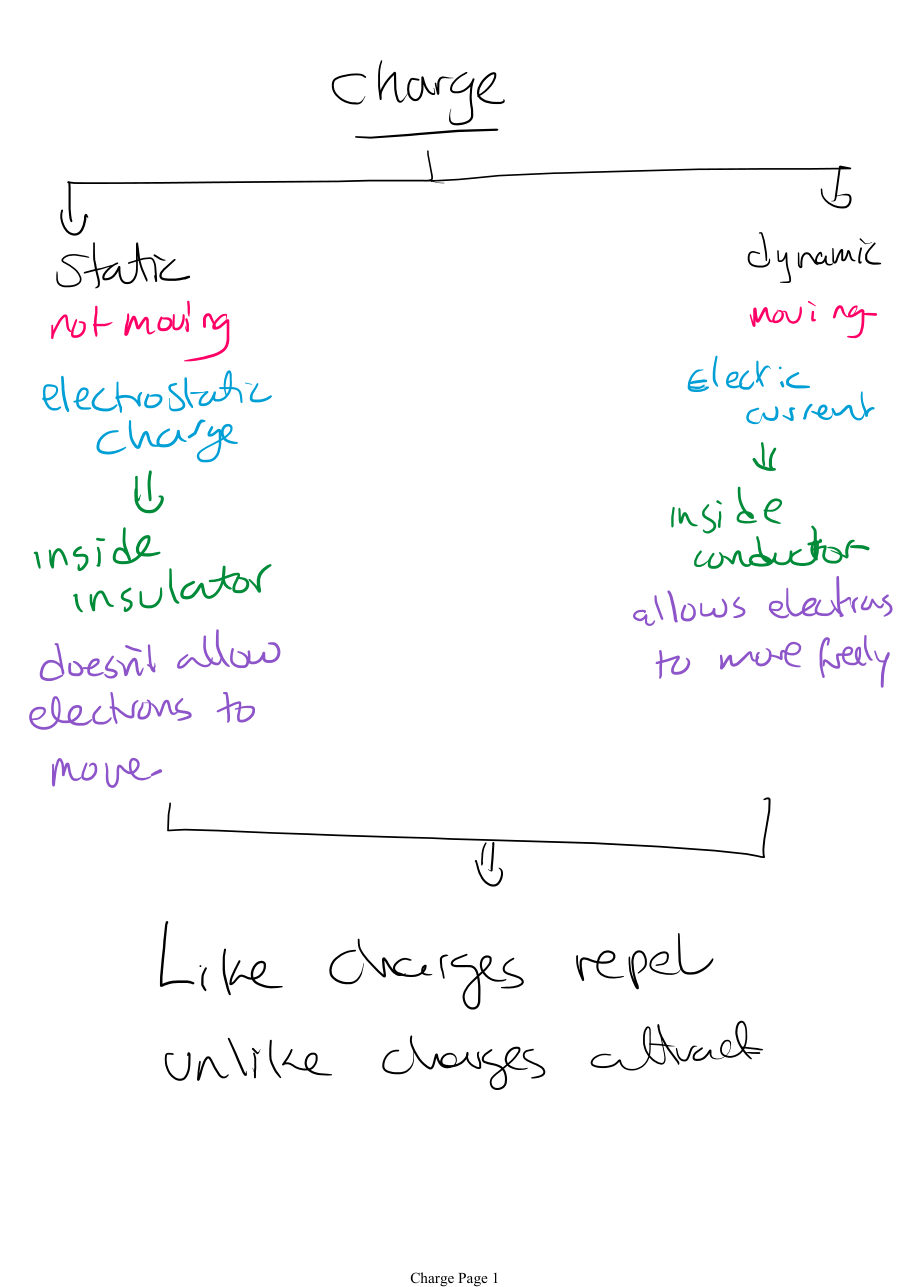 charge
static
not moving
electrostatic
charge
inside
insulator
doesn't allow
electrons to
move
dynamic
moving
Electric
current
inside
conductor
allows electrons
to move freely
Like charges repel
unlike charges attract
Charge Page 1